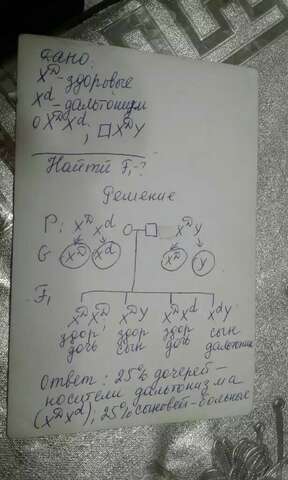 Дано:
X^D - здоровые
X^d - дальтонизм
O X^D X^d, □ X^D Y
Найти F₁-?
Решение
P: X^D X^d O □ X^D Y
G X^D X^d X^D Y
F₁
X^D X^D X^D Y X^D X^d X^d Y
здор здор здор сын
дочь сын дочь дальтоник
Ответ: 25% дочерей-
носители дальтонизма
(X^D X^d), 25% сыновей-больные